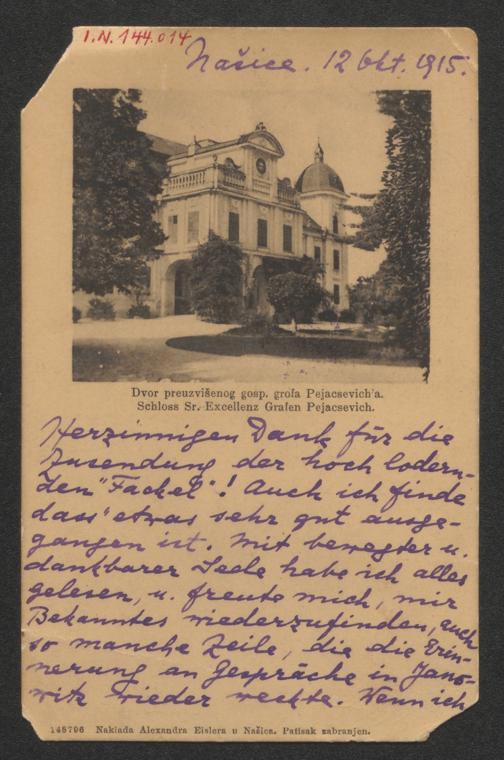 I.N. 144.014
Našice. 12 Okt. 1915.
Dvor preuzvišenog gosp. grofa Pejacsevich'a.
Schloss Sr. Excellenz Grafen Pejacsevich.
Herzinnigen Dank für die
Zusendung der hoch lodern-
den "Fackel"! Auch ich finde
dass "etwas sehr gut ausge-
gangen ist. Mit bewegter u.
dankbarer Seele habe ich alles
gelesen, u. freute mich, mir
Bekanntes wiederzufinden, auch
so manche Zeile, die die Erin-
nerung an Gespräche in Jano-
witz wieder weckte. Wenn ich
145796 Naklada Alexandra Eislera u Našica. Patisak zabranjen.